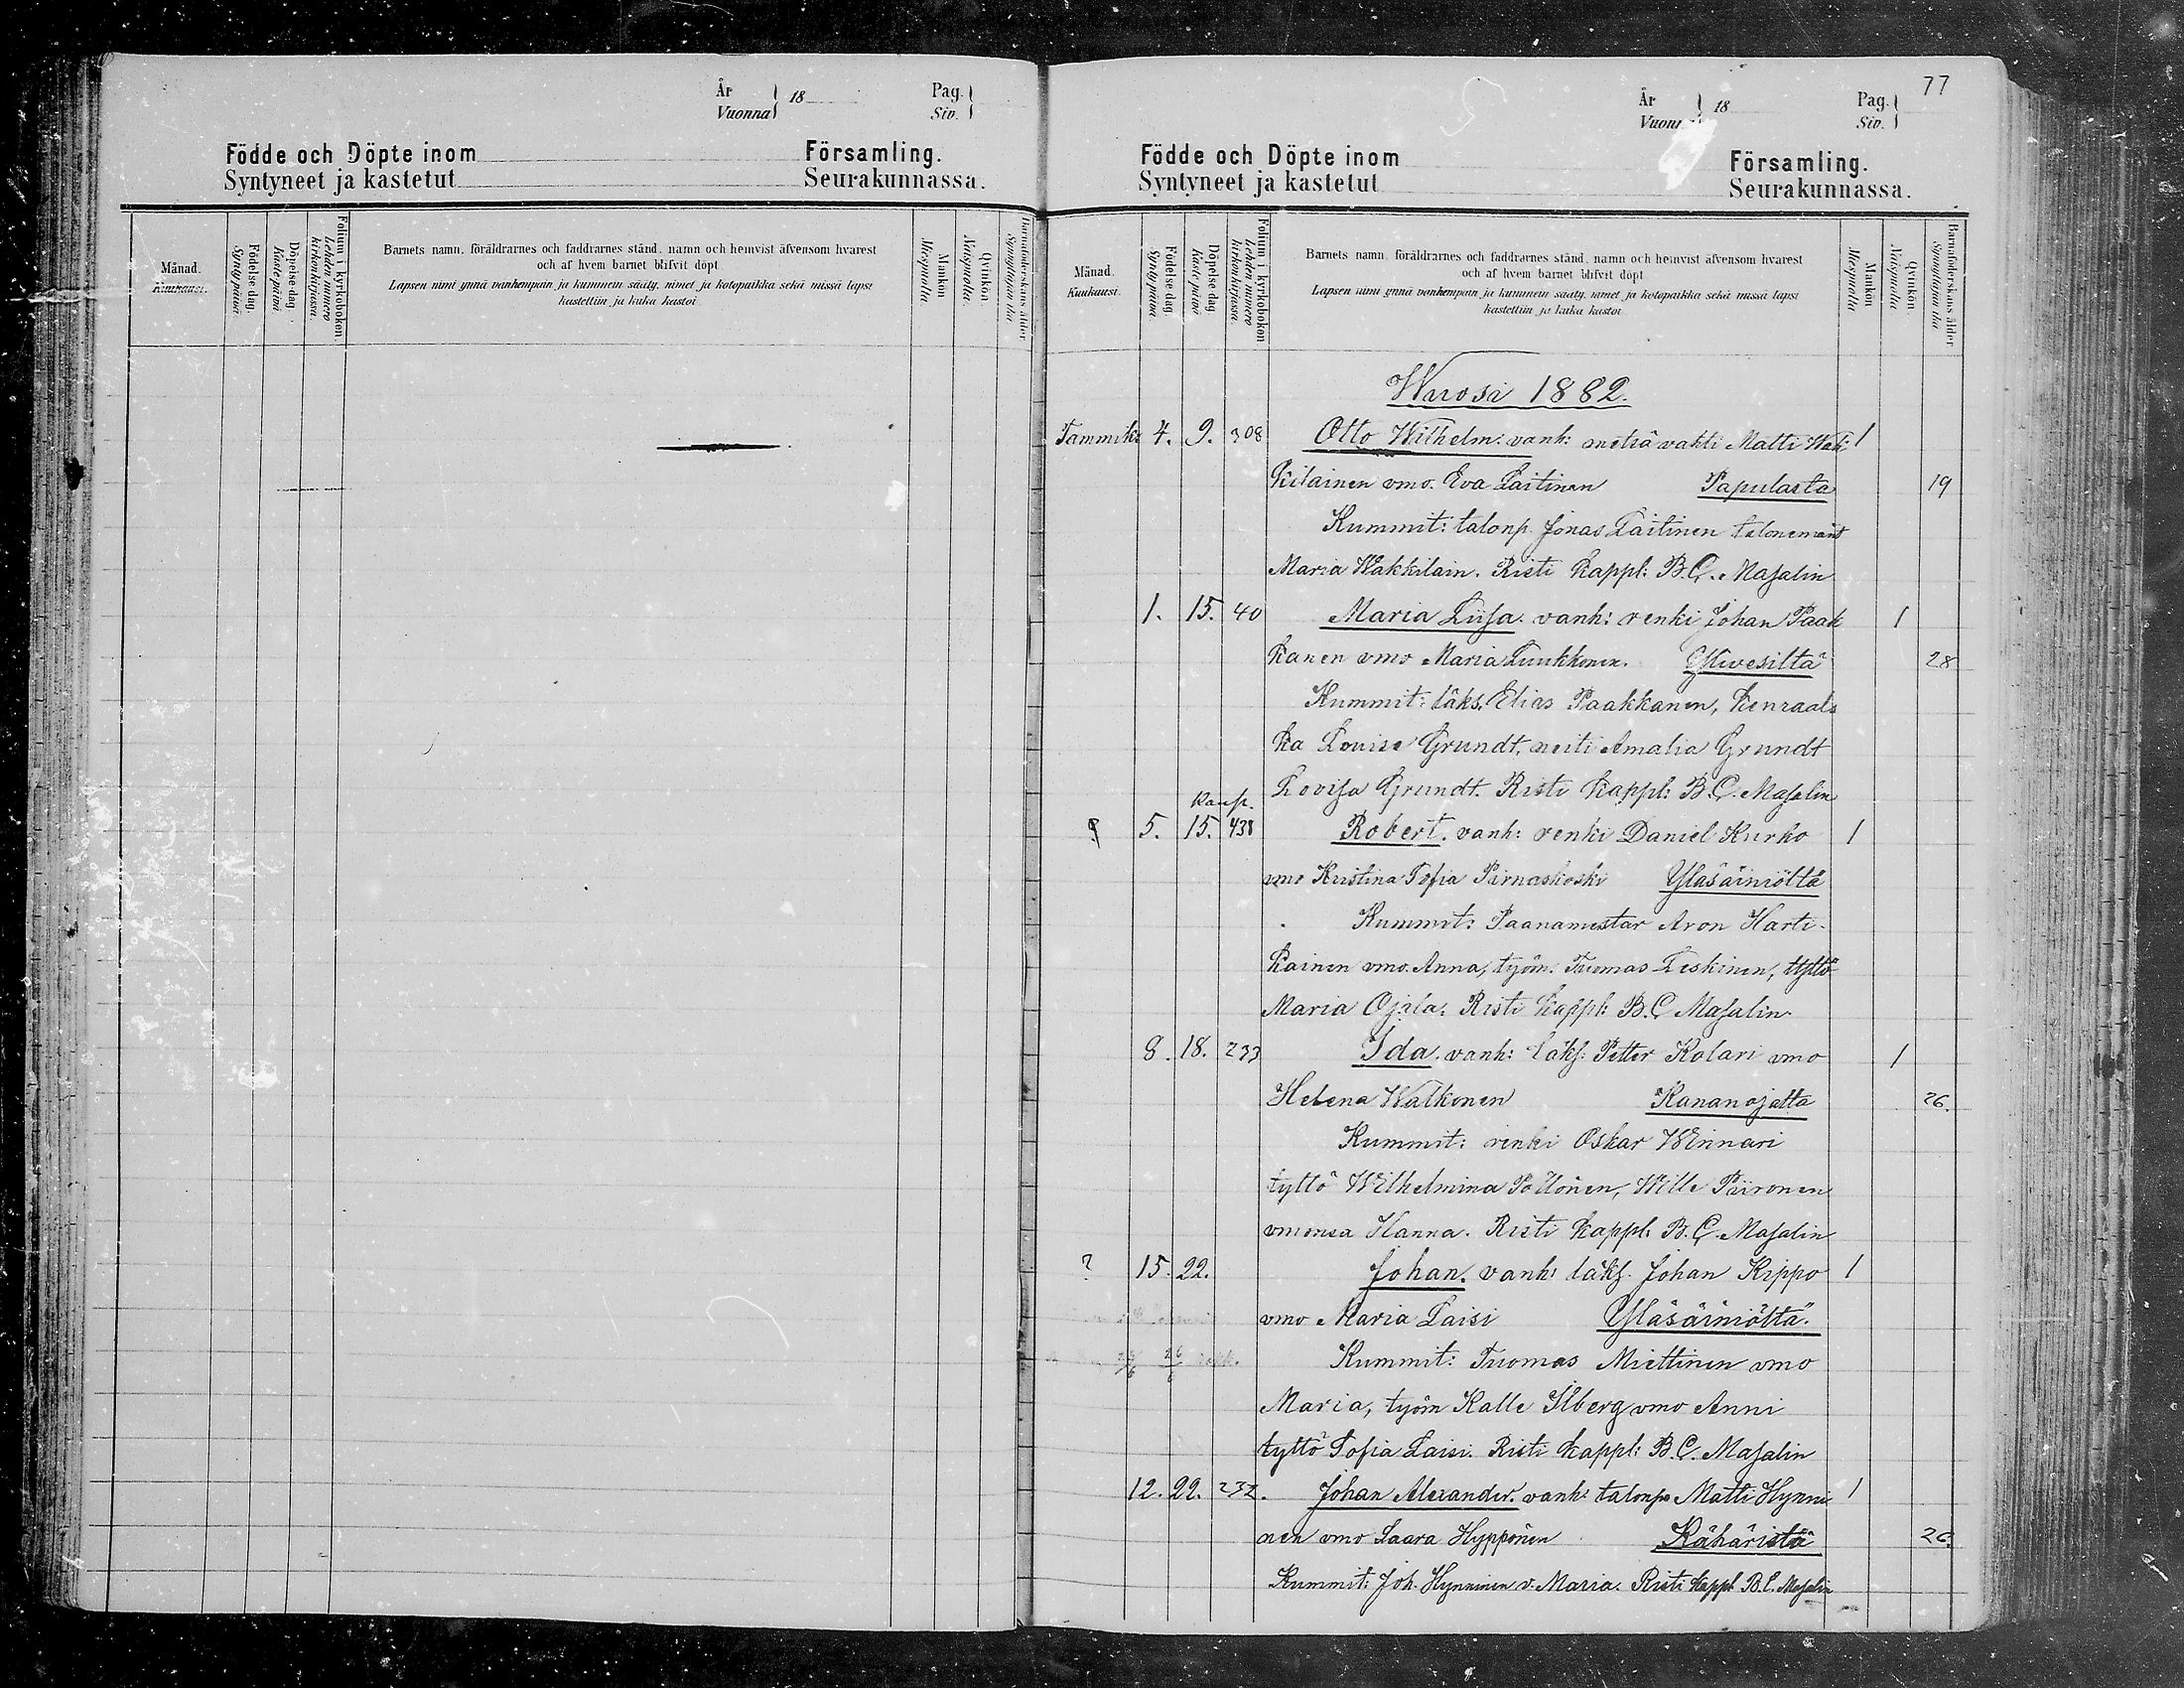 År Vuonna 18 Pag. Siv.
Födde och Döpte inom Församling.
Syntyneet ja kastetut Seurakunnassa.
Månad. Kuukausi.
Födelse dag. Syntypäivä
Döpelse dag. Kastepäivä.
Folium i kyrkoboken. Lehden numero kirkonkirjassa.
Barnets namn, föräldrarnes och faddrarnes stånd, namn och hemvist äfvensom hvarest
och af hvem barnet blifvit döpt
Lapsen nimi ynnä vanhempain ja kummein sääty, nimet ja kotopaikka sekä missä lapsi
kastettiin ja kuka kastoi
Mankön Miespuolia
Qvinkön. Naispuolia.
Barnaföderskans ålder
77
År Vuonna 18 Pag. Siv.
Födde och Döpte inom Församling.
Syntyneet ja kastetut Seurakunnassa.
Månad. Kuukausi.
Födelse dag Syntypäivä.
Döpelse dag Kastepäivä
Folium i kyrkoboken Lehden numero kirkonkirjassa.
Barnets namn, föräldrarnes och faddrarnes stånd, namn och hemvist äfvensom hvarest
och af hvem barnet blifvit döpt
Lapsen nimi ynnä vanhempain ja kummein sääty, nimet ja kotopaikka sekä missä lapsi
kastettiin ja kuka kastoi
Mankön Miespuolia
Qvinkön Naispuolia
Barnaföderskans ålder
Wuosi 1882.
Tammik. 4. 9. 308 Otto Wilhelm. vanh: metsävahti Matti Wak 1
kilainen vmo. Eva Laitinen Papulasta 19
Kummit: talonp. Jonas Laitinen talonemänt
Maria Wakkilain. Risti kappl: B.C. Masalin
1. 15. 40 Maria Liisa. vanh: renki Johan Paak 1
kanen vmo Maria Luukkonen. Ykwesiltä 28
Kummit: läks. Elias Paakkanen, kenraals
ka Louise Grundt, neiti Amalia Grundt
Lovisa Grundt. Risti kappl: B.C. Masalin
kaup.
? 5. 15. 438 Robert. vanh: renki Daniel Kurko 1
vmo Kristina Sofia Pärnaskoski Yläsäiniöltä
Kummit: Paanamestar Aron Harti-
kainen vmo. Anna, työm: Tuomas Leskinen, tyttö
Maria Ojala. Risti kappl: B.C. Masalin.
8. 18. 233 Ida. vanh: läks: Petter Kolari vmo 1
Helena Walkonen Kananojalta 26.
Kummit: renki Oskar Winnari
tyttö Wilhelmina Pöllönen, Wille Piironen
vmonsa Hanna. Risti kappl: B.C. Masalin
? 15. 22. Johan. vanh: läks. Johan Kippo 1
vmo Maria Laisi Yläsäiniöltä.
Kummit: Tuomas Miettinen vmo
Maria, työm Kalle Ilberg vmo Anni
tyttö Sofia Laisi. Risti kappl: B.C. Masalin
12. 22. 232. Johan Alexander. vanh: talonp. Matti Hynni 1
nen vmo Saara Hyppönen Kähäristä 26.
Kummit: Joh. Hynninen v. Maria. Risti kappl. B.C. Masalin